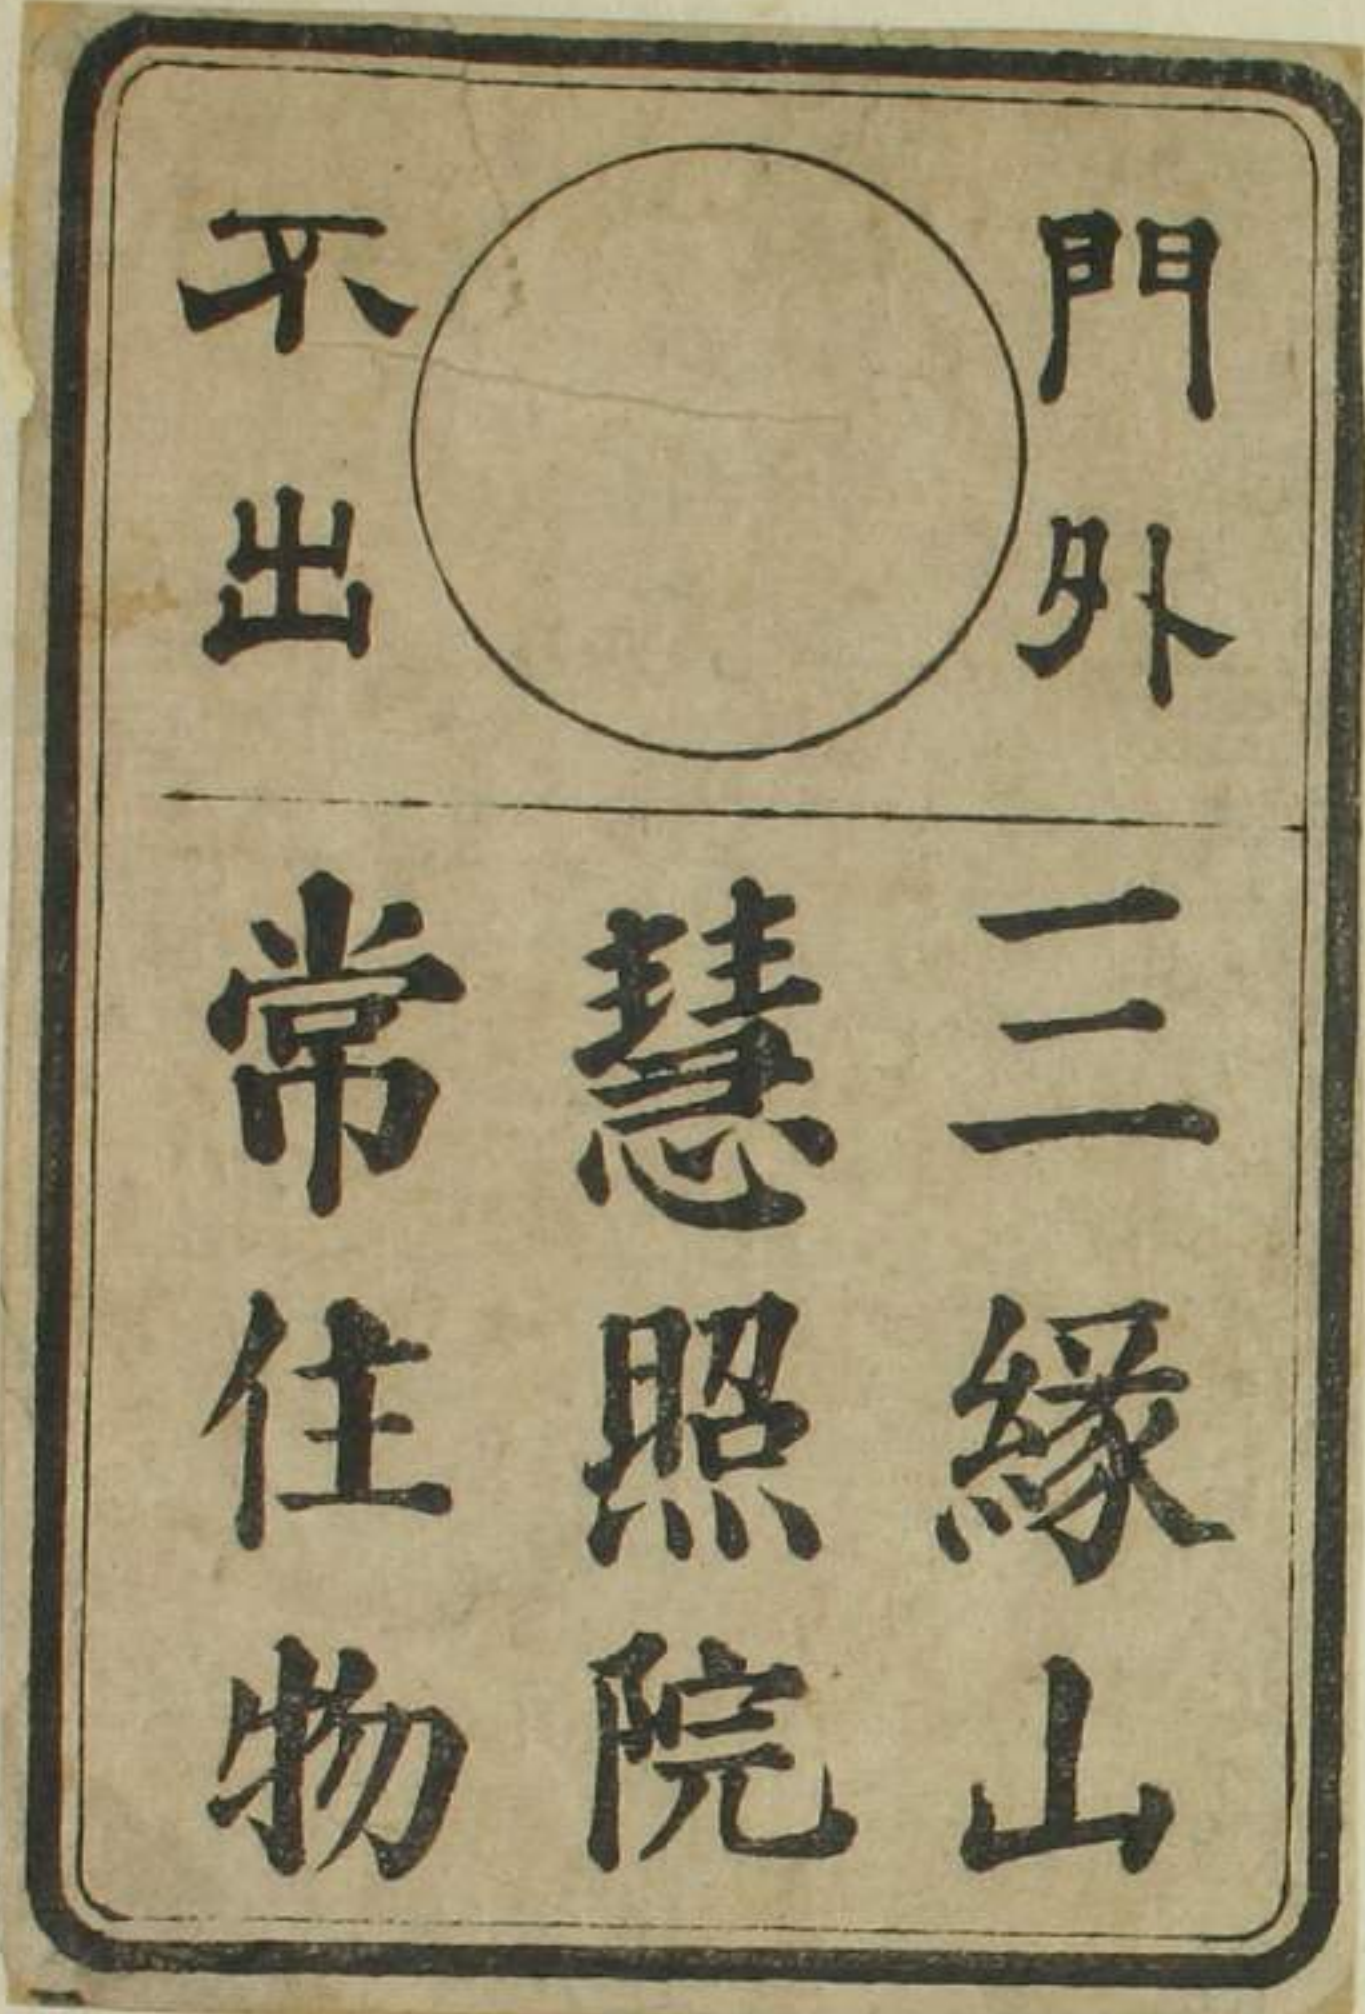 門外
不出
三緣山
慧照院
常住物